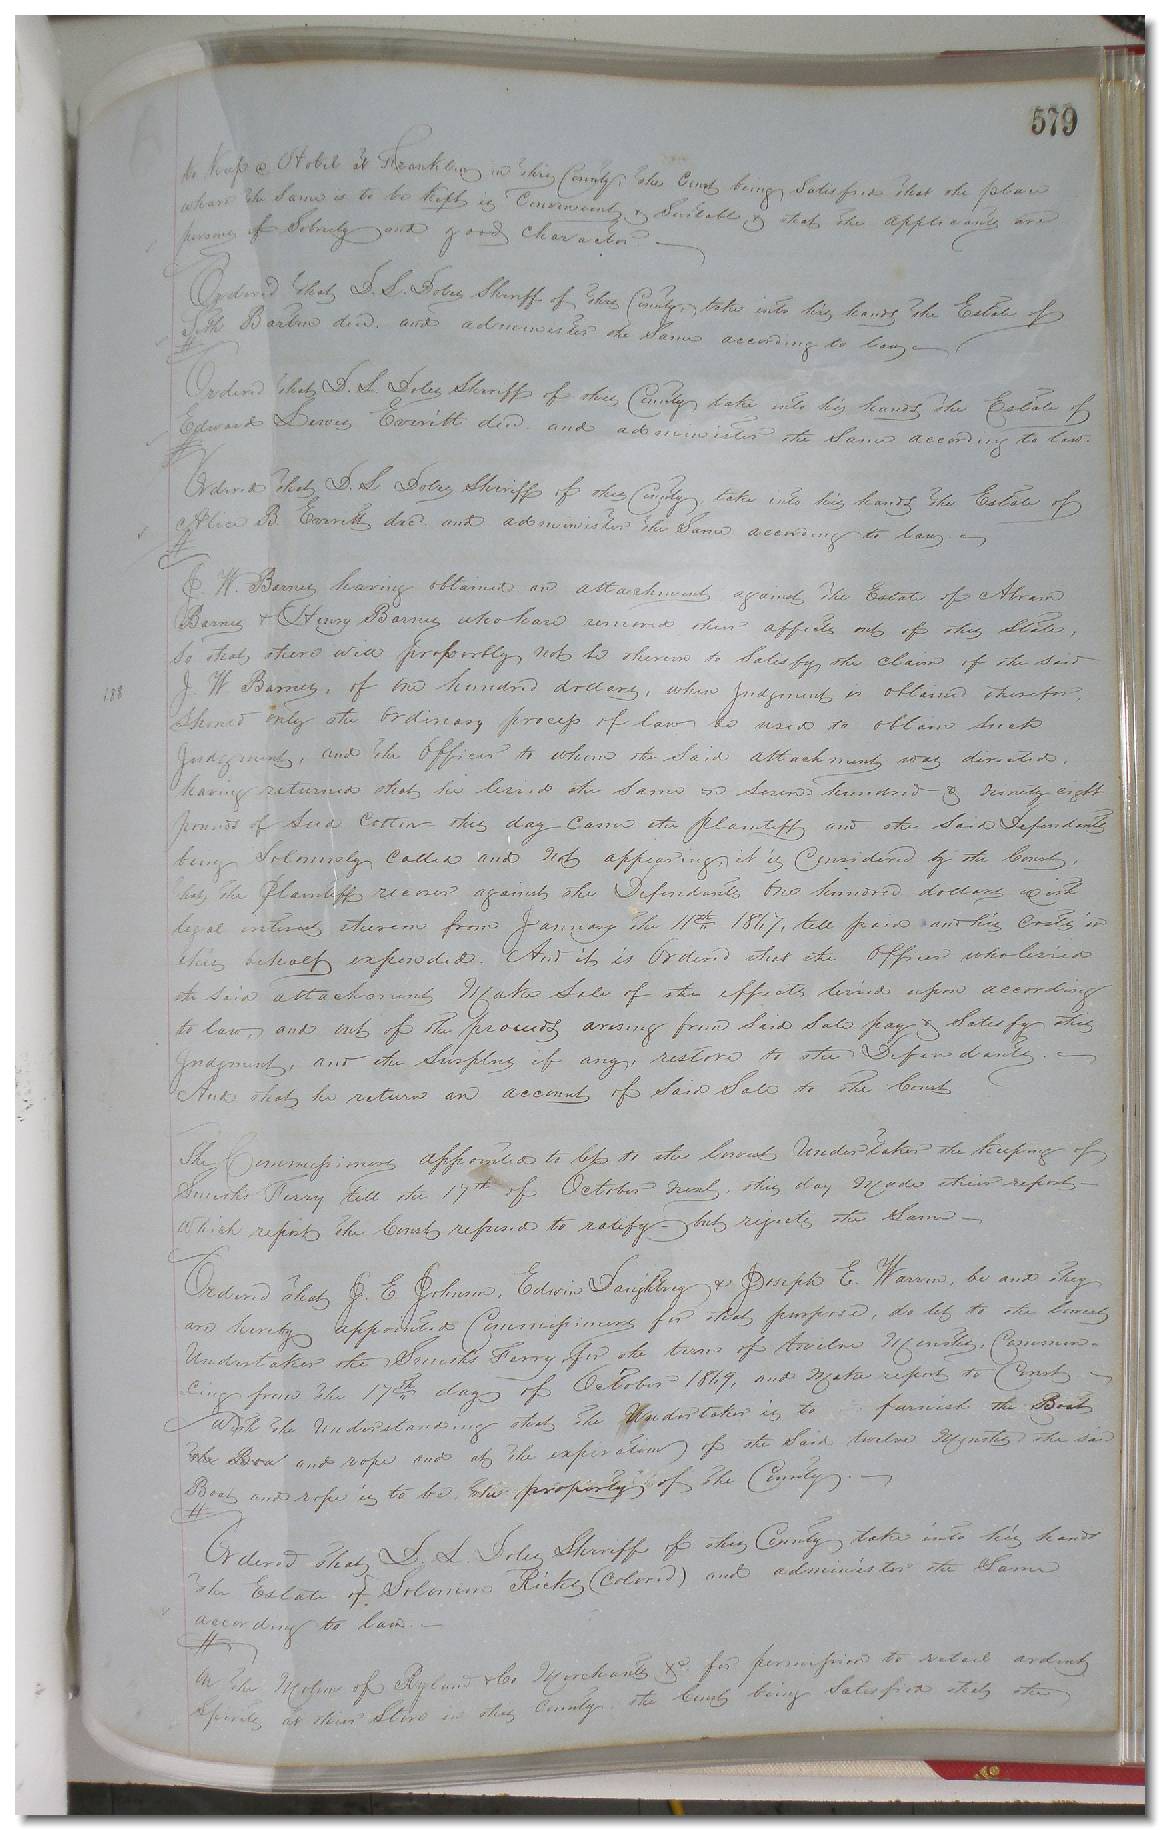 579
to keep a Hotel at Franklin in this County, the Court being Satisfied that the place
where the Same is to be kept is Convenient & Suitable & that the applicants are
persons of Sobriety and good Character
Ordered that Sheriff of this County, take into his hands the Estate of
Barten decd. and administer the Same according to law
Ordered that Sheriff of this County take into his hands the Estate of
Edward Lewis Everitt decd. and administer the Same according to law.
Ordered that Sheriff of this County, take into his hands the Estate of
Alice B. Everitt decd. and administer the Same according to law.
W. Barnes having obtained an attachment against the Estate of Abram
Barnes & Henry Barnes who have removed their effects out of this State,
So that there will probably not be therein to Satisfy the claim of the said
J. W Barnes, of one hundred dollars, when Judgment is obtained therefor,
Should only the ordinary process of law be used to obtain Such
Judgment, and the Officer to whom the Said attachment was directed,
having returned that he levied the Same on Seven hundred & ninety eight
pounds of Seed Cotton this day Came the plaintiff and the Said Defendants
being Solemnly Called and not appearing, it is Considered by the Court,
that the Plaintiff recover against the Defendants One hundred dollars with
legal interest thereon from January the 11th 1867, till paid and his Costs in
this behalf expended. And it is Ordered that the Officer who levied
the Said attachment Make Sale of the effects levied upon according
to law, and out of the proceeds arising from Said Sale pay & Satisfy this
Judgment, and the Surplus if any, restore to the Defendants.
And that he return an account of Said Sale to the Court
The Commissioners appointed to let to the lowest Undertaker the keeping of
Smiths Ferry till the 17th of October next, this day Made their report
Which report the Court refused to ratify but rejects the Same
Ordered that J. E. Johnson, Edwin & Joseph E. Warren, be and they
are hereby appointed Commissioners for that purpose, do let to the lowest
Undertaker the Smiths Ferry for the term of twelve Months, Commen-
cing from the 17th day of October 1869, and Make report to Court
With the Understanding that the Undertaker is to furnish the Boat
the Boat and rope and at the expiration of the Said twelve Months the said
Boat and rope is to be the property of the County.
Ordered that Sheriff of this County take into his hands
the Estate of Solomon Ricks (Colored) and administer the Same
according to law.
On the Motion of Ryland & Co Merchants &c. for permission to retail ardent
Spirits at their Store in this County, the Court being Satisfied that the